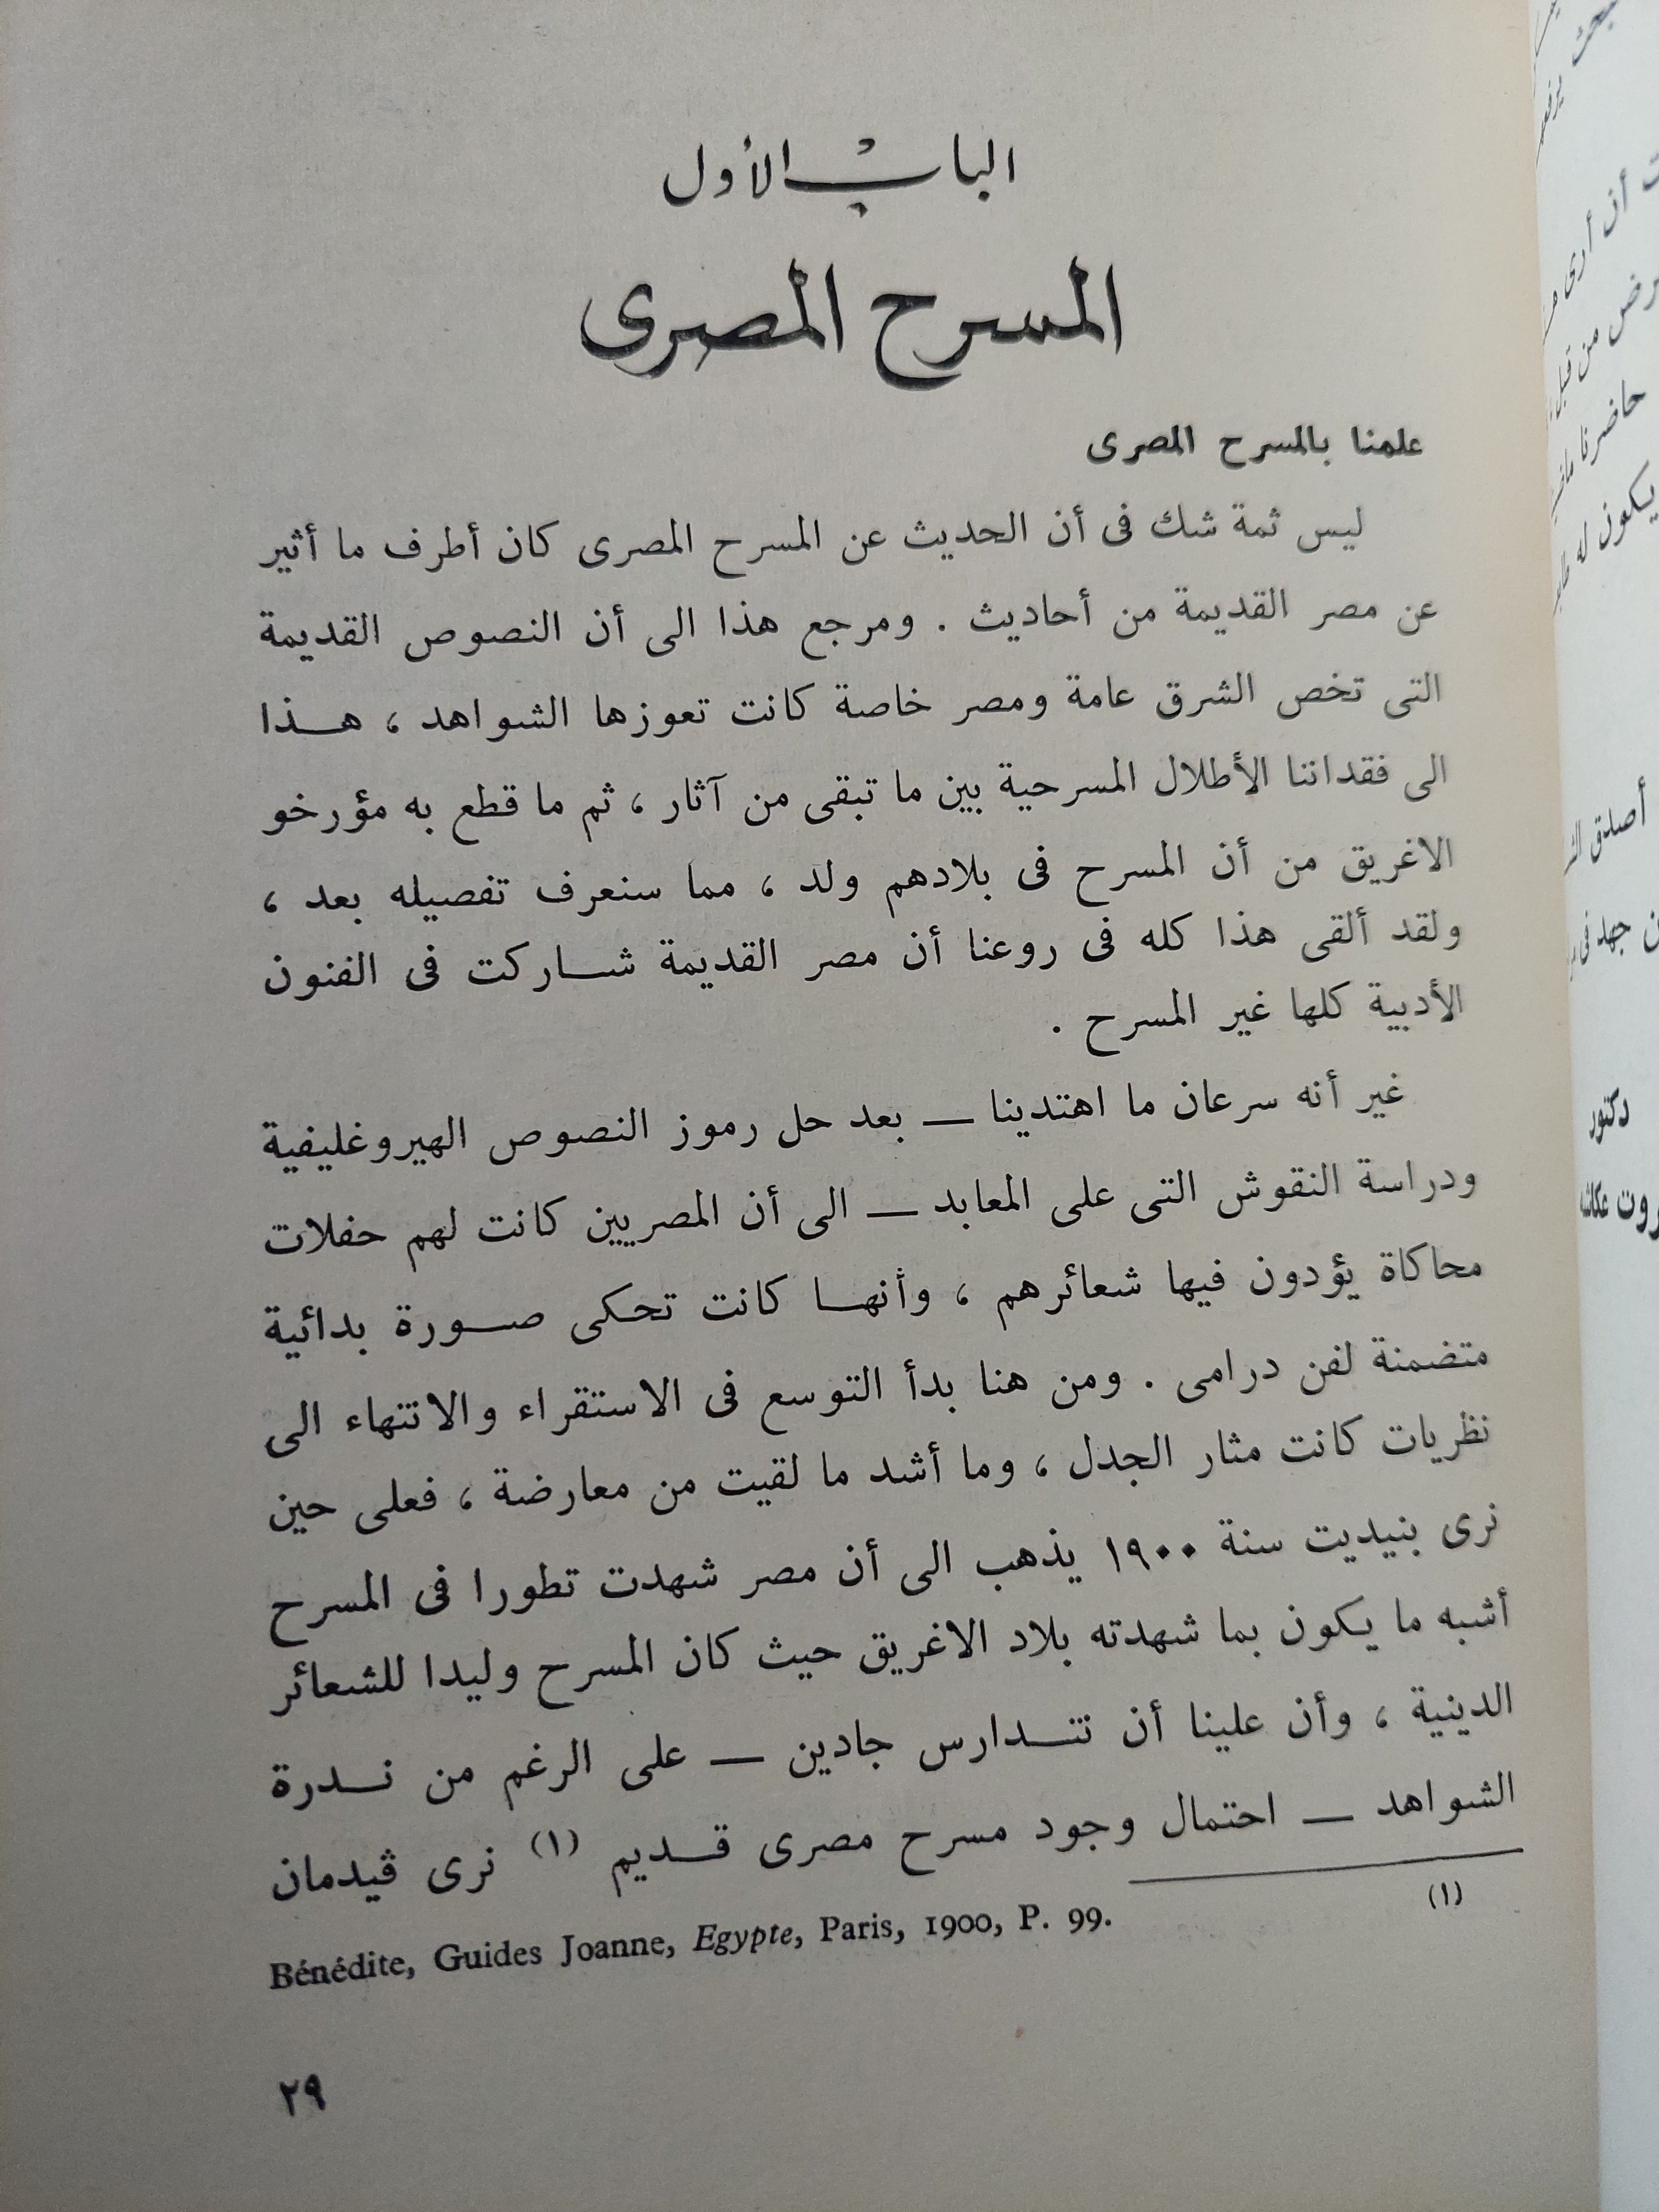 الباب الأول
المسرح المصرى
علمنا بالمسرح المصرى
ليس ثمة شك فى أن الحديث عن المسرح المصرى كان أطرف ما أثير
عن مصر القديمة من أحاديث . ومرجع هذا الى أن النصوص القديمة
التى تخص الشرق عامة ومصر خاصة كانت تعوزها الشواهد ، هـذا
الى فقداننا الأطلال المسرحية بين ما تبقى من آثار ، ثم ما قطع به مؤرخو
الاغريق من أن المسرح فى بلادهم ولد ، مما سنعرف تفصيله بعد ،
ولقد ألقى هذا كله فى روعنا أن مصر القديمة شـاركت فى الفنون
الأدبية كلها غير المسرح .
غير أنه سرعان ما اهتدينا — بعد حل رموز النصوص الهيروغليفية
ودراسة النقوش التى على المعابد — الى أن المصريين كانت لهم حفلات
محاكاة يؤدون فيها شعائرهم ، وأنهـا كانت تحكى صـورة بدائية
متضمنة لفن درامى . ومن هنا بدأ التوسع فى الاستقراء والانتهاء الى
نظريات كانت مثار الجدل ، وما أشد ما لقيت من معارضة ، فعلى حين
نرى بنيديت سنة ١٩٠٠ يذهب الى أن مصر شهدت تطورا فى المسرح
أشبه ما يكون بما شهدته بلاد الاغريق حيث كان المسرح وليدا للشعائر
الدينية ، وأن علينا أن نتـدارس جادين — على الرغم من نـدرة
الشواهد — احتمال وجود مسرح مصرى قـديم (١) نرى ڤيدمان
(١)
Bénédite, Guides Joanne, Egypte, Paris, 1900, P. 99.
٢٩
أصدق
دكتور